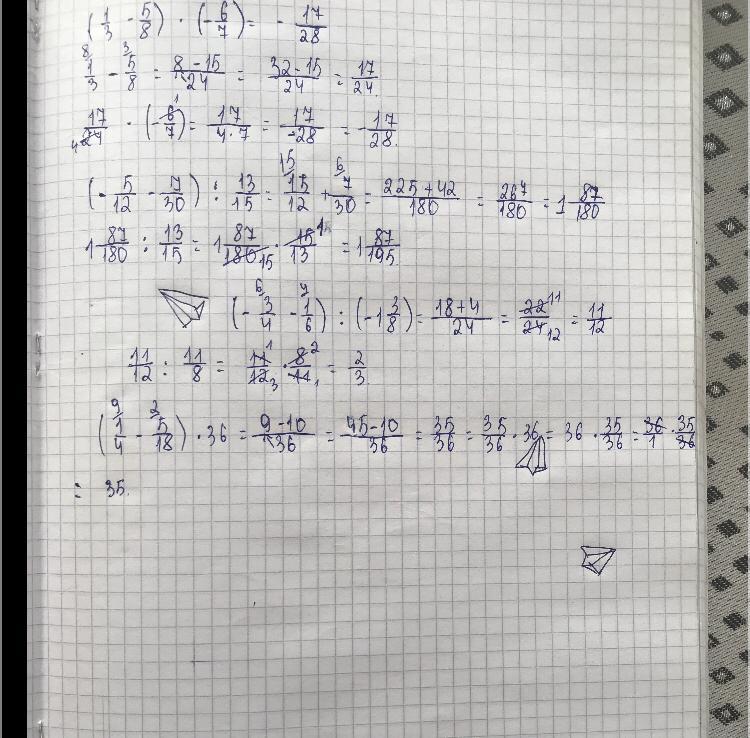 (1/3 - 5/8) · (-6/7) = - 17/28
8 1/3 - 3 5/8 = 8-15/24 = 32-15/24 = 17/24.
17/4 24 · (-6/7 1) = 17/4·7 = 17/-28 = -17/28.
(-5/12 - 7/30) : 13/15 = 15 15/12 + 6 7/30 = 225+42/180 = 267/180 = 1 87/180
1 87/180 : 13/15 = 1 87/180 15 · 15/13 1 = 1 87/195.
(-6 3/4 - 4 1/6) : (-1 3/8) = 18+4/24 = 22 11/24 12 = 11/12
11/12 : 11/8 = 11 1/12 3 · 8 2/11 1 = 2/3.
(9 1/4 - 2 5/18) · 36 = 9-10/36 = 45-10/36 = 35/36 = 35/36 · 36 = 36 · 35/36 = 36/1 · 35/36
= 35.